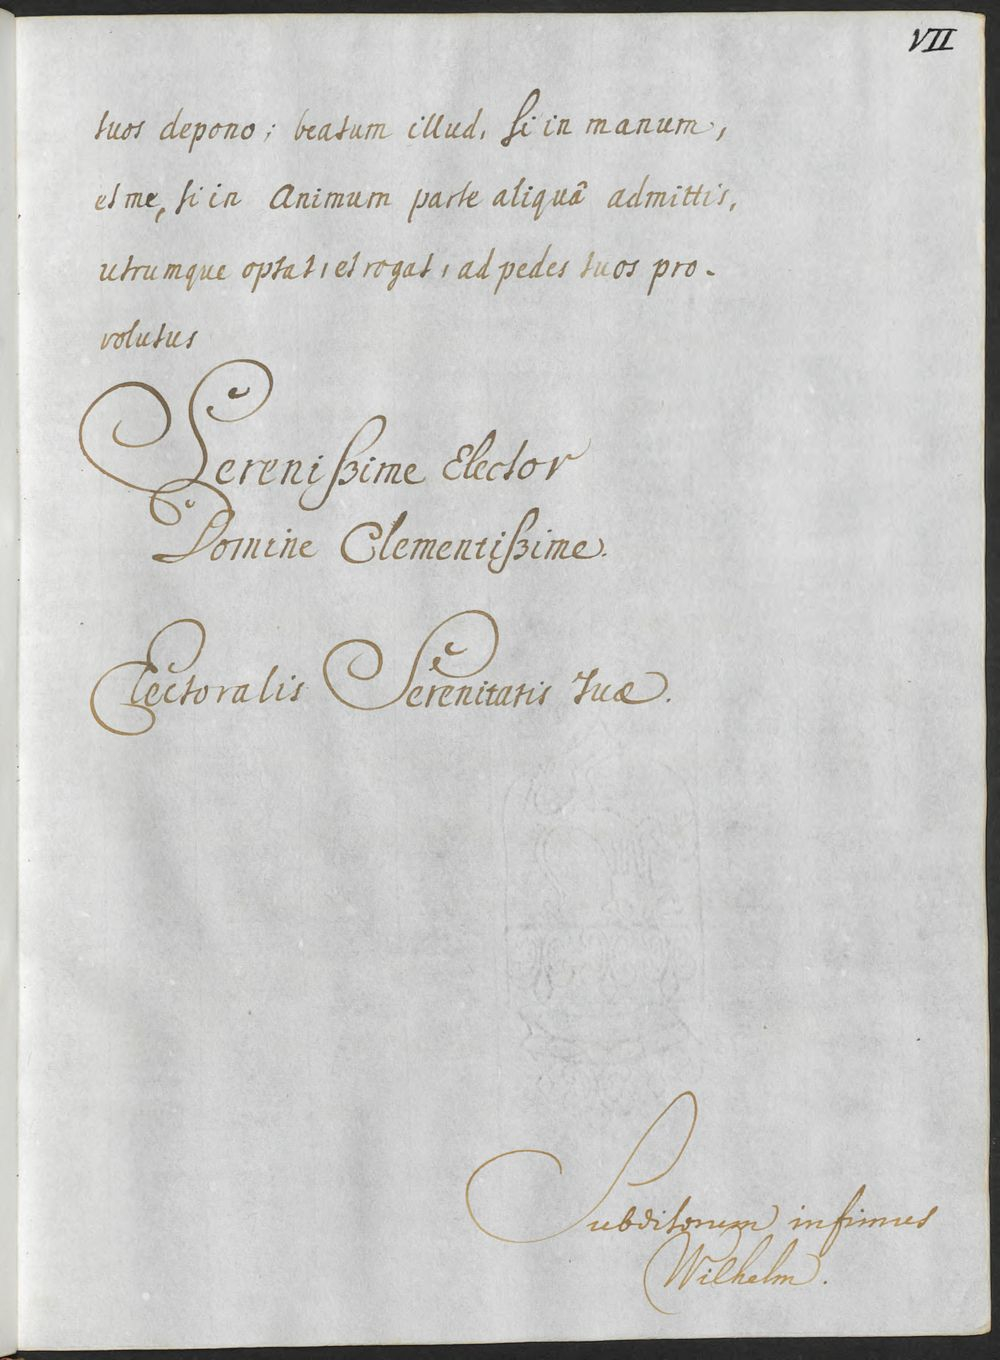 VII
tuos depono; beatum illud, si in manum,
et me, si in Animum parte aliquâ admittis,
utrumque optat, et rogat, ad pedes tuos pro-
volutus
Sereniſzime Elector
Domine Clementiſzime.
Electoralis Serenitatis Tuæ.
Subditorum infimus
Wilhelm.